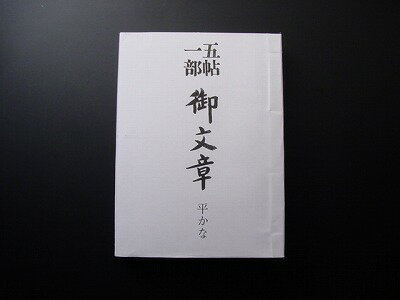 五帖一部
御文章
平かな